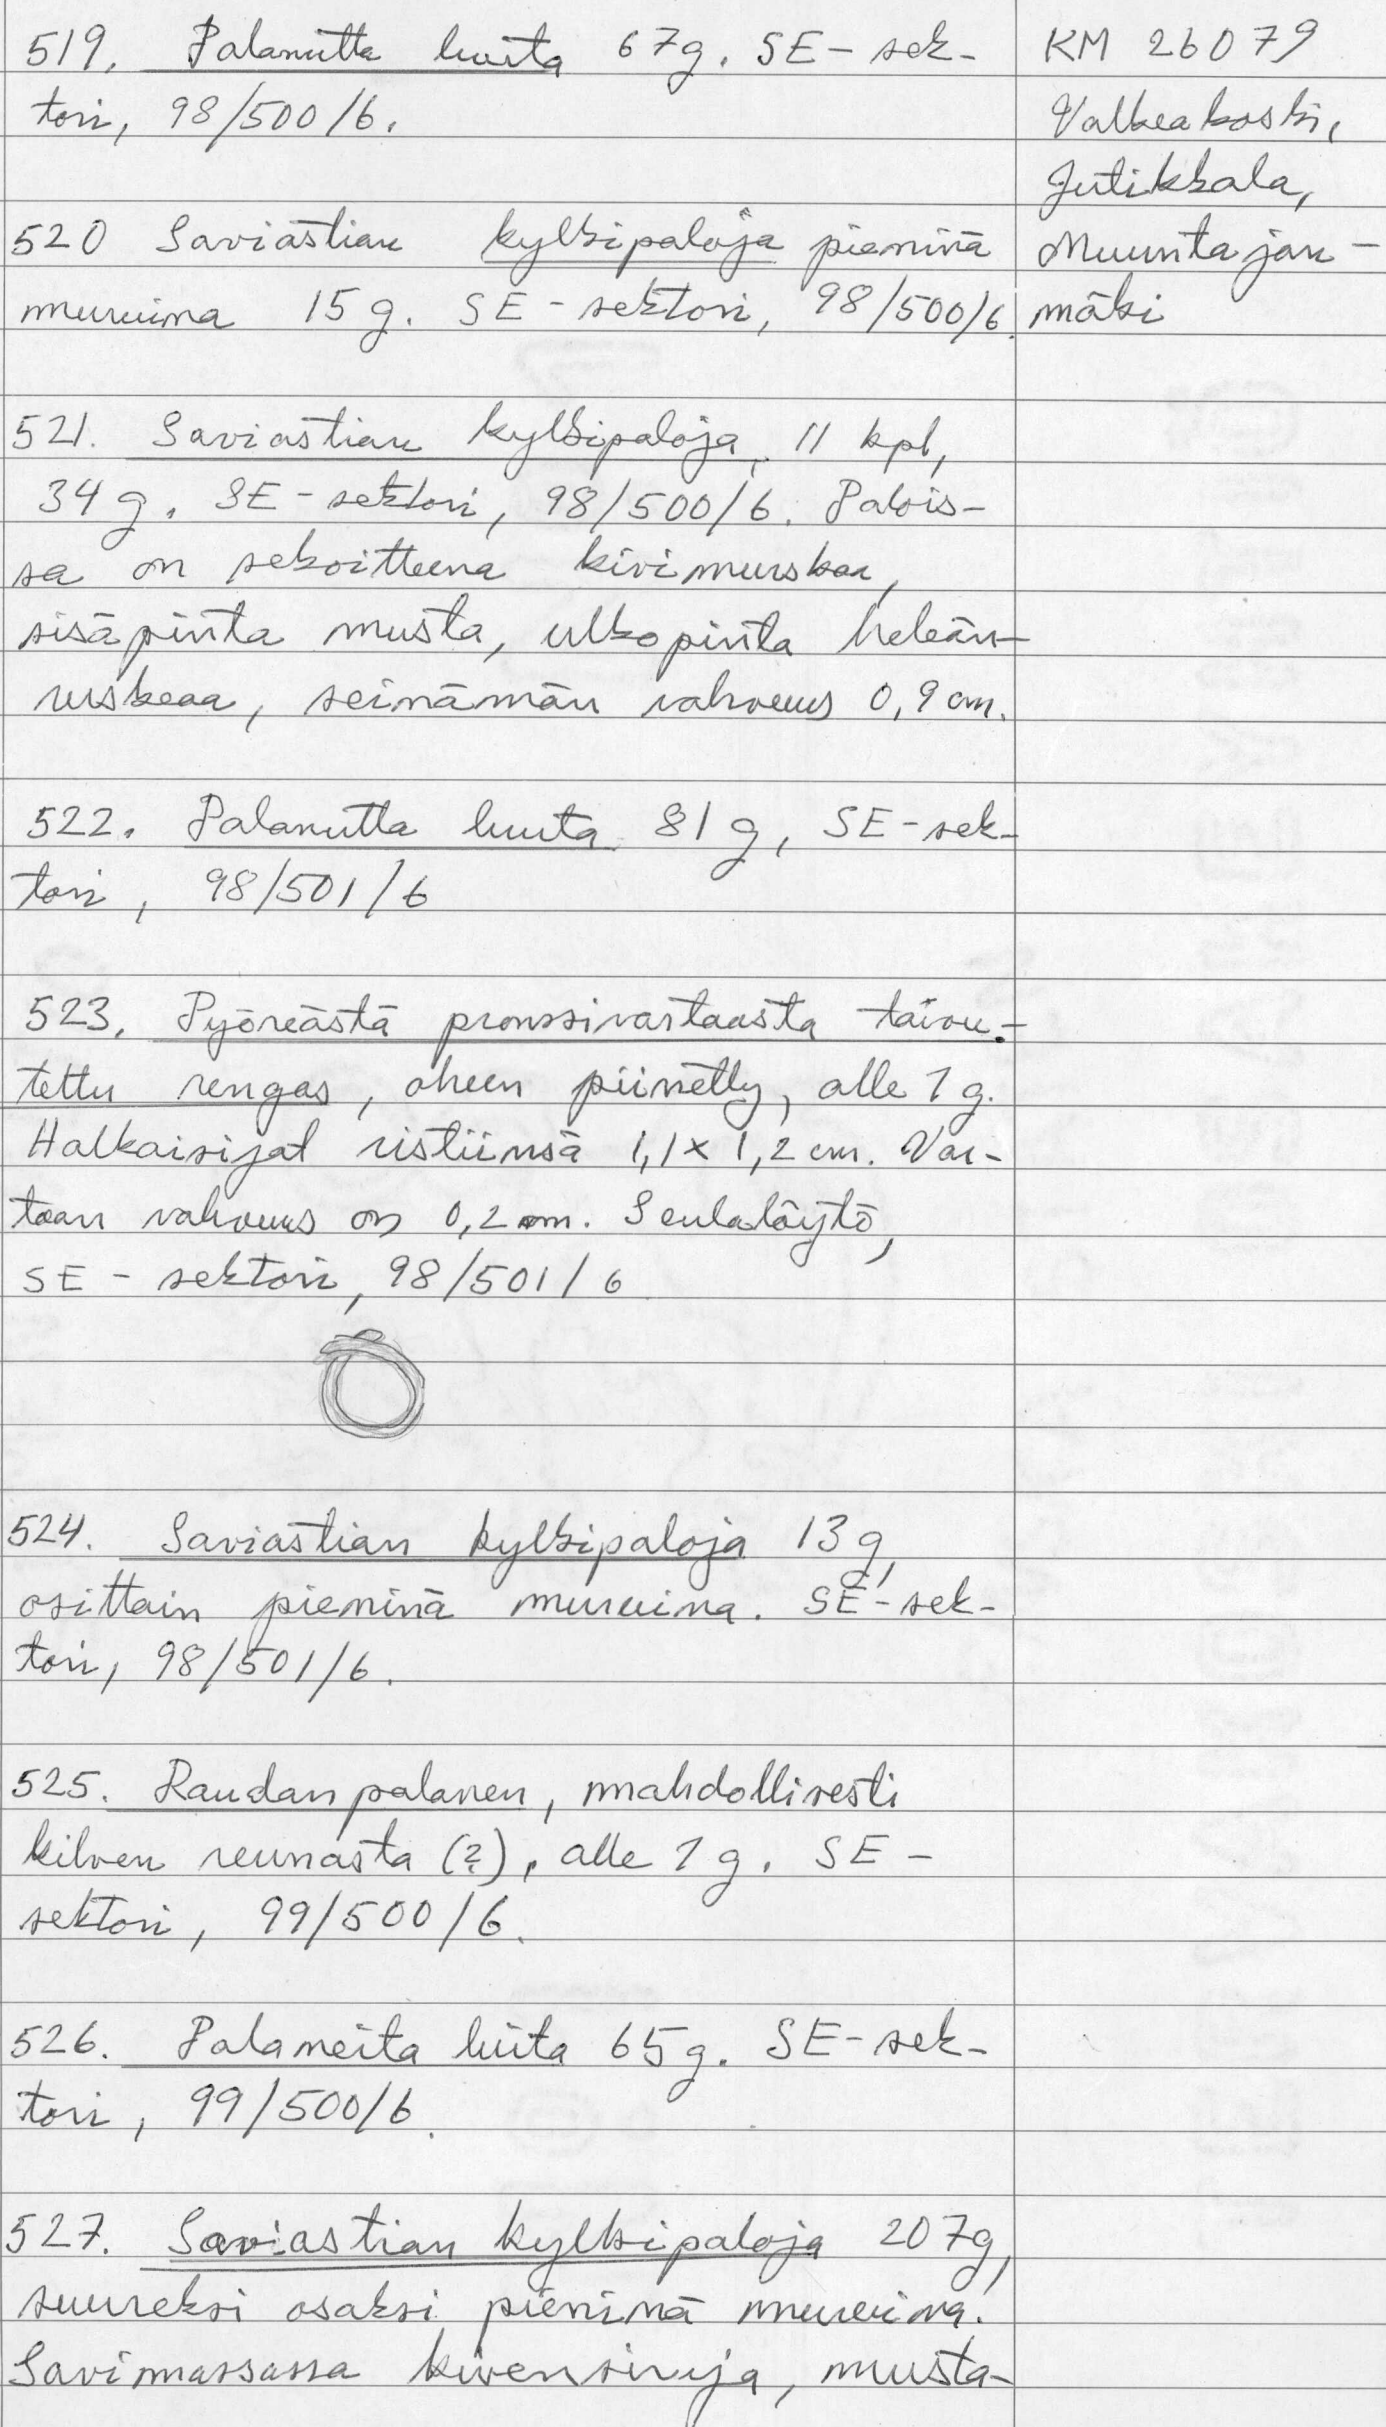 519. Palanutta luuta 67g. SE-sek-
tori, 98/500/6.
520 Saviastian kylkipaloja pieninä
muruina 15g. SE-sektori, 98/500/6.
521. Saviastian kylkipaloja, 11 kpl,
34g. SE-sektori, 98/500/6. Palois-
sa on sekoitteena kivimurskaa,
sisäpinta musta, ulkopinta heleän-
ruskeaa, seinämän vahvuus 0,9 cm.
522. Palanutta luuta 81g, SE-sek-
tori, 98/501/6
523. Pyöreästä pronssivartaasta taivu-
tettu rengas, oheen piirretty, alle 1g.
Halkaisijat ristiinsä 1,1x1,2 cm. Var-
taan vahvuus on 0,2 cm. Seulalöytö,
SE-sektori, 98/501/6
524. Saviastian kylkipaloja 13g,
osittain pieninä muruina. SE-sek-
tori, 98/501/6.
525. Raudan palanen, mahdollisesti
kilven reunasta (?), alle 1g. SE-
sektori, 99/500/6.
526. Palaneita luita 65g. SE-sek-
tori, 99/500/6.
527. Saviastian kylkipaloja 207g,
suureksi osaksi pieninä muruina.
Savimassassa kivensiruja, musta-
KM 26079
Valkeakoski,
Jutikkala,
Muuntajan-
mäki